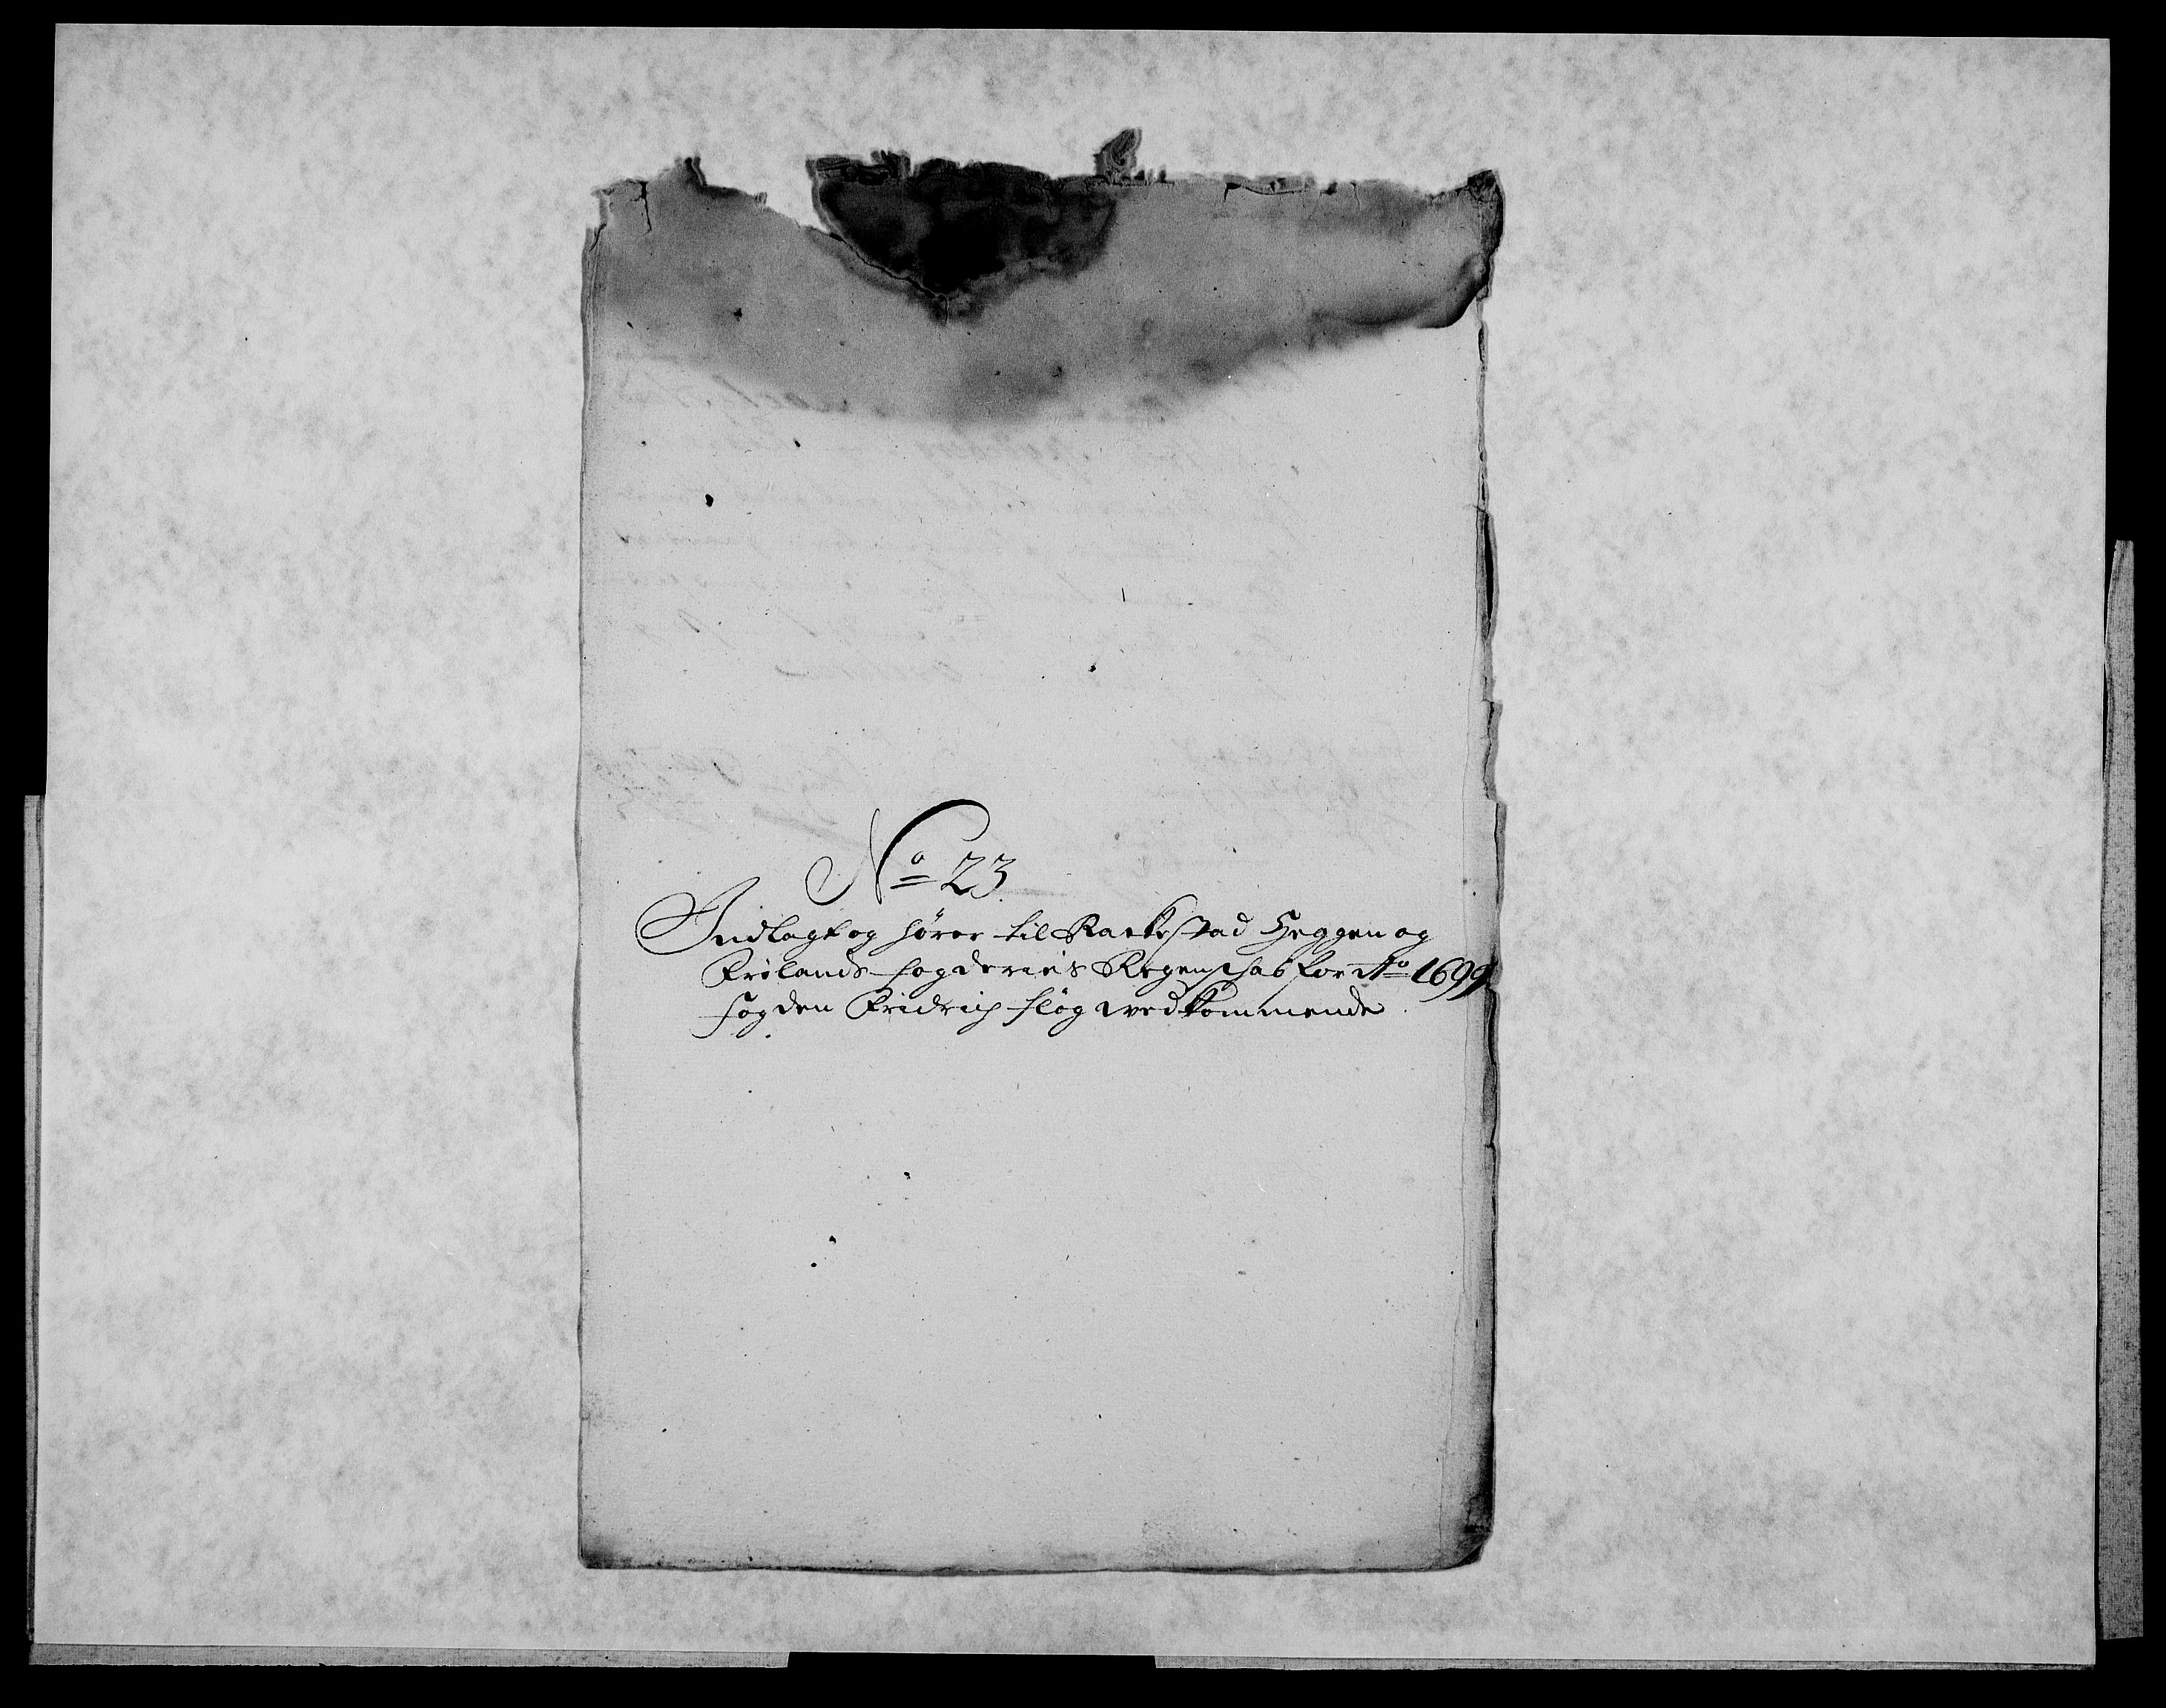 No 23
Indlagt og hører til Rackestad Heggen og
Frølands fogderies Regenschab for Ao 1699
fogden Fridrich fløg wedkommende